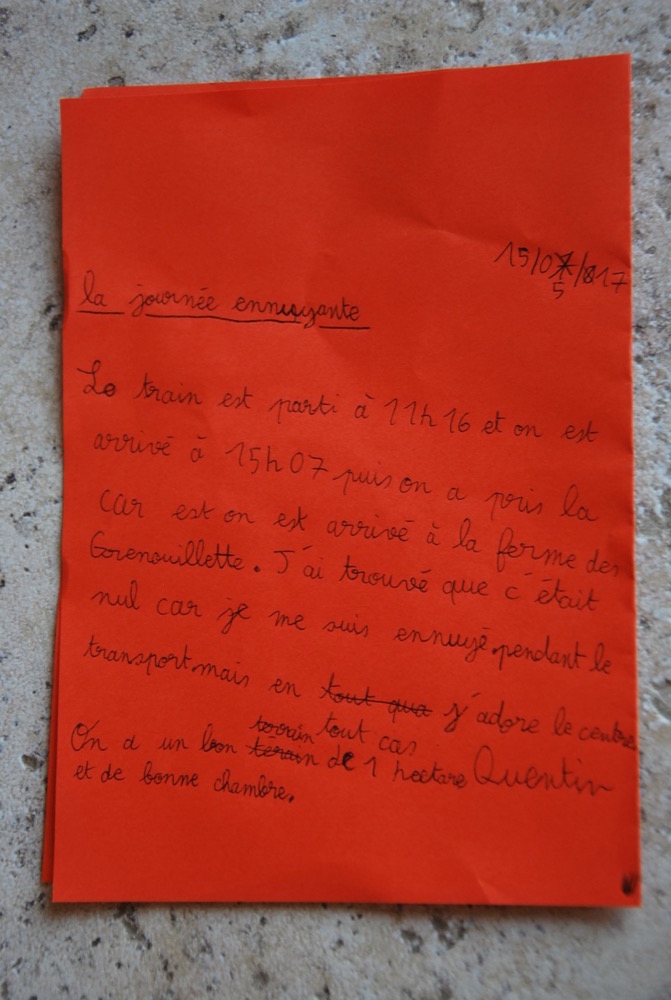 15/05/17
la journée ennuyante
Le train est parti à 11h16 et on est
arrivé à 15h07 puis on a pris la
car est on est arrivé à la ferme des
Gorenouillette. J'ai trouvé que c'était
nul car je me suis ennuyé pendant le
transport mais en tout qua j'adore le centre
terrain tout cas
On a un bon terain de 1 hectare Quentin
et de bonne chambre.